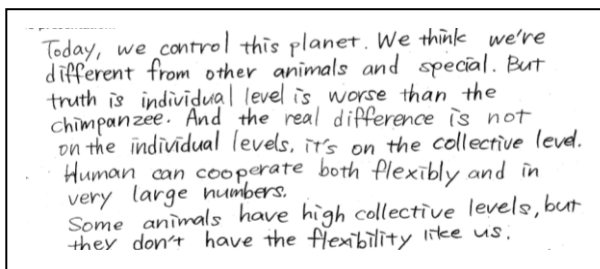 Today, we control this planet. We think we're
different from other animals and special. But
truth is individual level is worse than the
chimpanzee. And the real difference is not
on the individual levels, it's on the collective level.
Human can cooperate both flexibly and in
very large numbers.
Some animals have high collective levels, but
they don't have the flexibility like us.